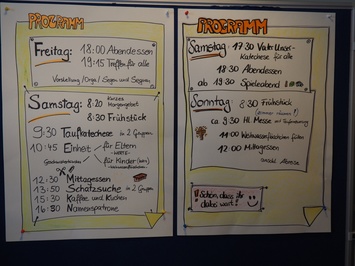 PROGRAMM
Freitag: 18:00 Abendessen
19:15 Treffen für alle
Vorstellung / Orga / Segen und
Samstag: 8:20 kurzes Morgengebet
8:30 Frühstück
9:30 Taufkatechese in 2 Gruppen
10:45 Einheit für Eltern
für Kinder
12:30 Mittagessen
13:50 Schatzsuche in 2 Gruppen
15:30 Kaffee und Kuchen
16:30 Namenspatrone
PROGRAMM
Samstag: 17:30 Vater Unser-
Katechese für alle
18:30 Abendessen
ab 19:30 Spieleabend
Sonntag: 8:30 Frühstück
ca 9:30 Hl. Messe mit Tauferneuerung
11:00 Weihwasserfläschchen füllen
12:00 Mittagessen
anschl. Abreise
Schön, dass ihr
dabei wart!